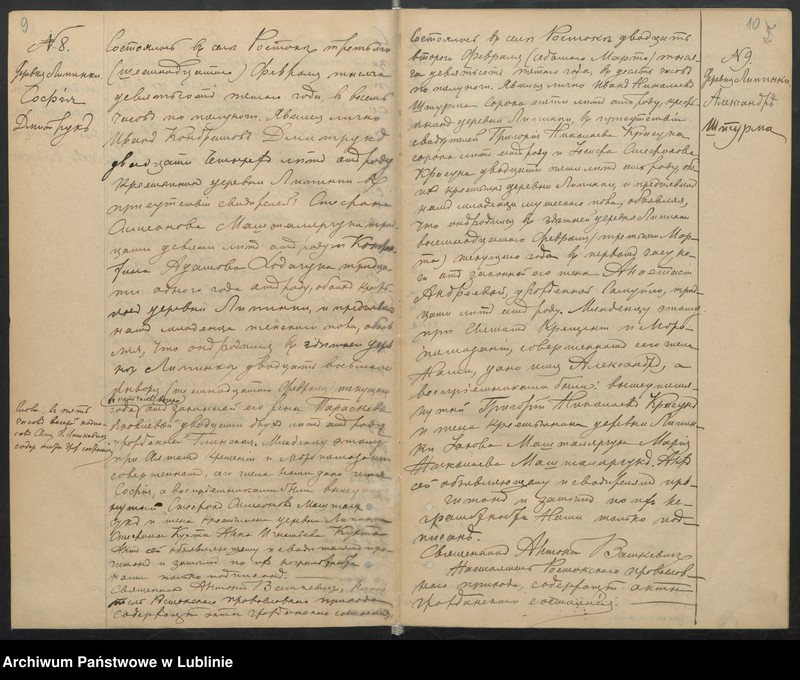 9
№ 8.
Деревня Липинки
Софія
Дмитрукъ
Состоялось въ селѣ Ростокъ третьяго
(шестнадцатого) Февраля тысяча
девятьсотъ пятаго года въ восемь
часовъ по полуночи. Явился лично
Иванъ Кондратовъ Дмитрукъ
двадцати четырехъ лѣтъ отъ роду
крестьянинъ деревни Липинки въ
присутствіи свидѣтелей: Стефана
Симеонова Машталярчука
цати девяти лѣтъ отъ роду и
Адамова Ходачука тридца-
ти одного года отъ роду, обоихъ крест
деревни Липинки, и предъявилъ
намъ младенца женскаго пола, объяв
ляя, что онъ родился въ здѣшней дерев
нѣ Липинки двадцать восьмаго
Января (десятаго Февраля) текущаго
года отъ законной его жены Параскевы
Яковлевой двадцати двухъ лѣтъ отъ роду
урожденной Младенцу этому
при Святомъ крещеніи и Мѵропомазаніи
совершенномъ сего числа нами дано имя
Софія, а воспріемниками были вышеупомя
нутый Стефанъ Симеоновъ Машталяр
чукъ и жена крестьянина деревни Липинки
Стефана Кухты Анна Кухта
Актъ сей объявляющему и свидѣтелямъ про-
читанъ и затѣмъ по ихъ неграмотности
нами только подписанъ.
Священникъ Антоній Вашкевичъ, Настоя
тель Ростокского православнаго прихода
содержащій акты гражданскаго состоянія.
10
№ 9.
Деревня Липинки
Александръ
Штурма
Состоялось въ селѣ Ростокъ двадцать
втораго Февраля (седьмаго Марта) тысяча
девятьсотъ пятаго года, въ десять часовъ
по полуночи. Явился лично Иванъ Николаевъ
Штурма сорока пяти лѣтъ отъ роду, крест
янинъ деревни Липинки, въ присутствіи
свидѣтелей Григорія Николаева Крысука
сорока лѣтъ отъ роду и Стефанова
Крысука двадцати пяти лѣтъ отъ роду, обо
ихъ крестьянъ деревни Липинки, и предъявилъ
намъ младенца мужескаго пола, объявляя,
что онъ родился въ здѣшней деревнѣ Липинки
восемнадцатаго Февраля (третьяго Мар-
та) текущаго года въ первомъ часу но-
чи отъ законной его жены Анастасіи
Андреевой, урожденной Самуйло, трид-
цати лѣтъ отъ роду. Младенцу этому
при Святомъ Крещеніи и Мѵро-
помазаніи, совершенномъ сего числа
Нами, дано имя Александръ, а
воспріемниками были: вышеупомя-
нутый Григорій Николаевъ Крысукъ
и жена крестьянина деревни Липин-
ки Іакова Машталярчука Марія
Николаева Машталярчукъ. Актъ
сей объявляющему и свидѣтелямъ про-
читанъ и затѣмъ по ихъ не-
грамотности Нами только под-
писанъ.
Священникъ Антоній Вашкевичъ
Настоятель Ростокскаго православ-
наго прихода, содержащій акты
гражданскаго состоянія.
Archiwum Państwowe w Lublinie